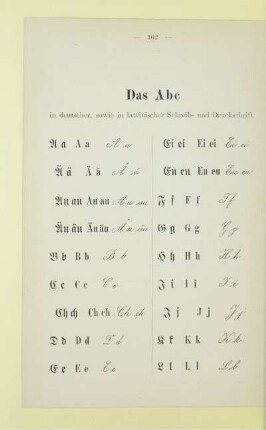 — 162 —
Das Abc
in deutscher, sowie in lateinischer Schreib- und Druckschrift.
Aa Aa A a
Ää Ää Ä ä
Au au Au au Au au
Äu äu Äu äu Äu äu
Bb Bb B b
Cc Cc C c
Ch ch Ch ch Ch ch
Dd Dd D d
Ee Ee E e
Ei ei Ei ei Ei ei
Eu eu Eu eu Eu eu
Ff Ff F f
Gg Gg G g
Hh Hh H h
Ii Ii I i
Jj Jj J j
Kk Kk K k
Ll Ll L l